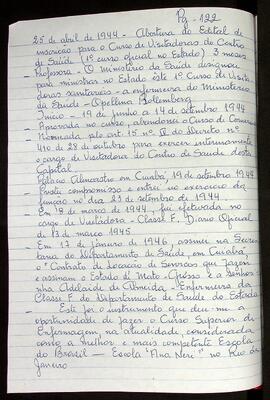 Pg - 122
25 de abril de 1944 - Abertura do Edital de
inscrição para o Curso de Visitadoras do Centro
de Saúde (1º curso oficial no Estado) 3 meses
Professora - O ministério da Saúde designou
para ministrar no Estado este 1º Curso de Visita
doras Sanitárias - a enfermeira do Ministério
da Saúde - Rollemberg
Início - 19 de junho a 14 de setembro 1944
Aprovada no curso, abandonei o Curso de Comércio
Nomeada pelo art 15 nº do Decreto nº
410 de 28 de outubro para exercer interinamente
o cargo de Visitadora do Centro de Saúde desta
Capital.
Palácio Alencastro em Cuiabá 19 de setembro 1944
Prestei compromisso e entrei no exercício da
função no dia 21 de setembro de 1944
- Em 18 de março de 1944, fui efetivada no
cargo de Visitadora - Classe F. Diario Oficial
de 18 de março 1945
- Em 17 de janeiro de 1946, assumi na Secre
taria do Departamento de Saúde, em Cuiabá,
o "Contrato de Locação de Serviços que fazem
e assinam o Estado de Mato-Grosso e a Senhori
nha Adelaide de Almeida - Enfermeira da
Classe F do Departamento de Saúde do Estado
- Este foi o instrumento que deu-me a
oportunidade de fazer o Curso Superior de
Enfermagem na atualidade, considerada
como a melhor e mais competente Escola
do Brasil - Escola "Ana Neri" no Rio de
Janeiro